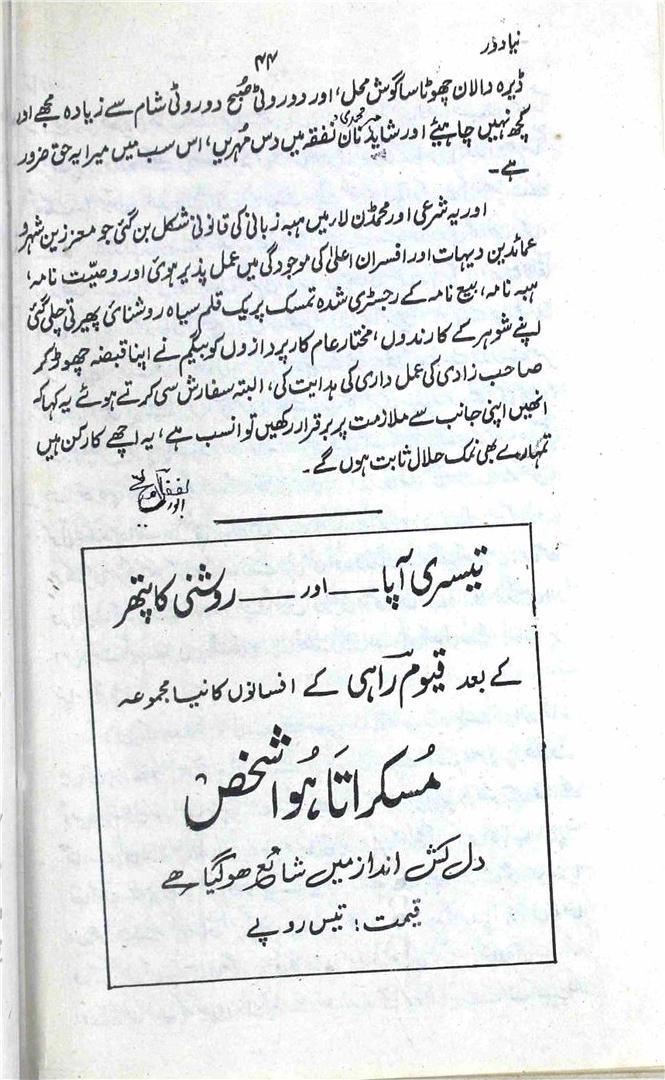 نیا دور
۴۴
ڈیرہ دالان چھوٹا سا گوش محل، اور دو روٹی صُبح دو روٹی شام سے زیادہ مجھے اور
کچھ نہیں چاہیئے اور شاید نان نفقہ میں دس مُہریں، اس سب میں میرا یہ حق ضرور
ہے۔
اور یہ شرعی اور محمڈن لار میں ہبہ زبانی کی قانونی شکل بن گئی جو معززین شہر و
عمائدین دیہات اور افسران اعلیٰ کی موجودگی میں عمل پذیر ہوئی اور وصیّت نامہ،
ہبہ نامہ، بیع نامہ کے رجسٹری شدہ تمسک پر یک قلم سیاہ روشنائی پھیرتی چلی گئی
اپنے شوہر کے کارندوں، مختار عام کار پردازوں کو بیگم نے اپنا قبضہ چھوڑ کر
صاحب زادی کی عمل داری کی ہدایت کی، البتہ سفارش سی کرتے ہوئے یہ کہا کہ
انھیں اپنی جانب سے ملازمت پر برقرار رکھیں تو انسب ہے، یہ اچھے کارکن ہیں
تمہارے بھی نمک حلال ثابت ہوں گے۔
تیسری آپا —— اور —— روشنی کا پتھر
کے بعد قیوم راہی کے افسانوں کا نیا مجموعہ
مُسکراتا ہُوا شخص
دل کش انداز میں شائع ہوگیا ہے
قیمت: تیس روپے